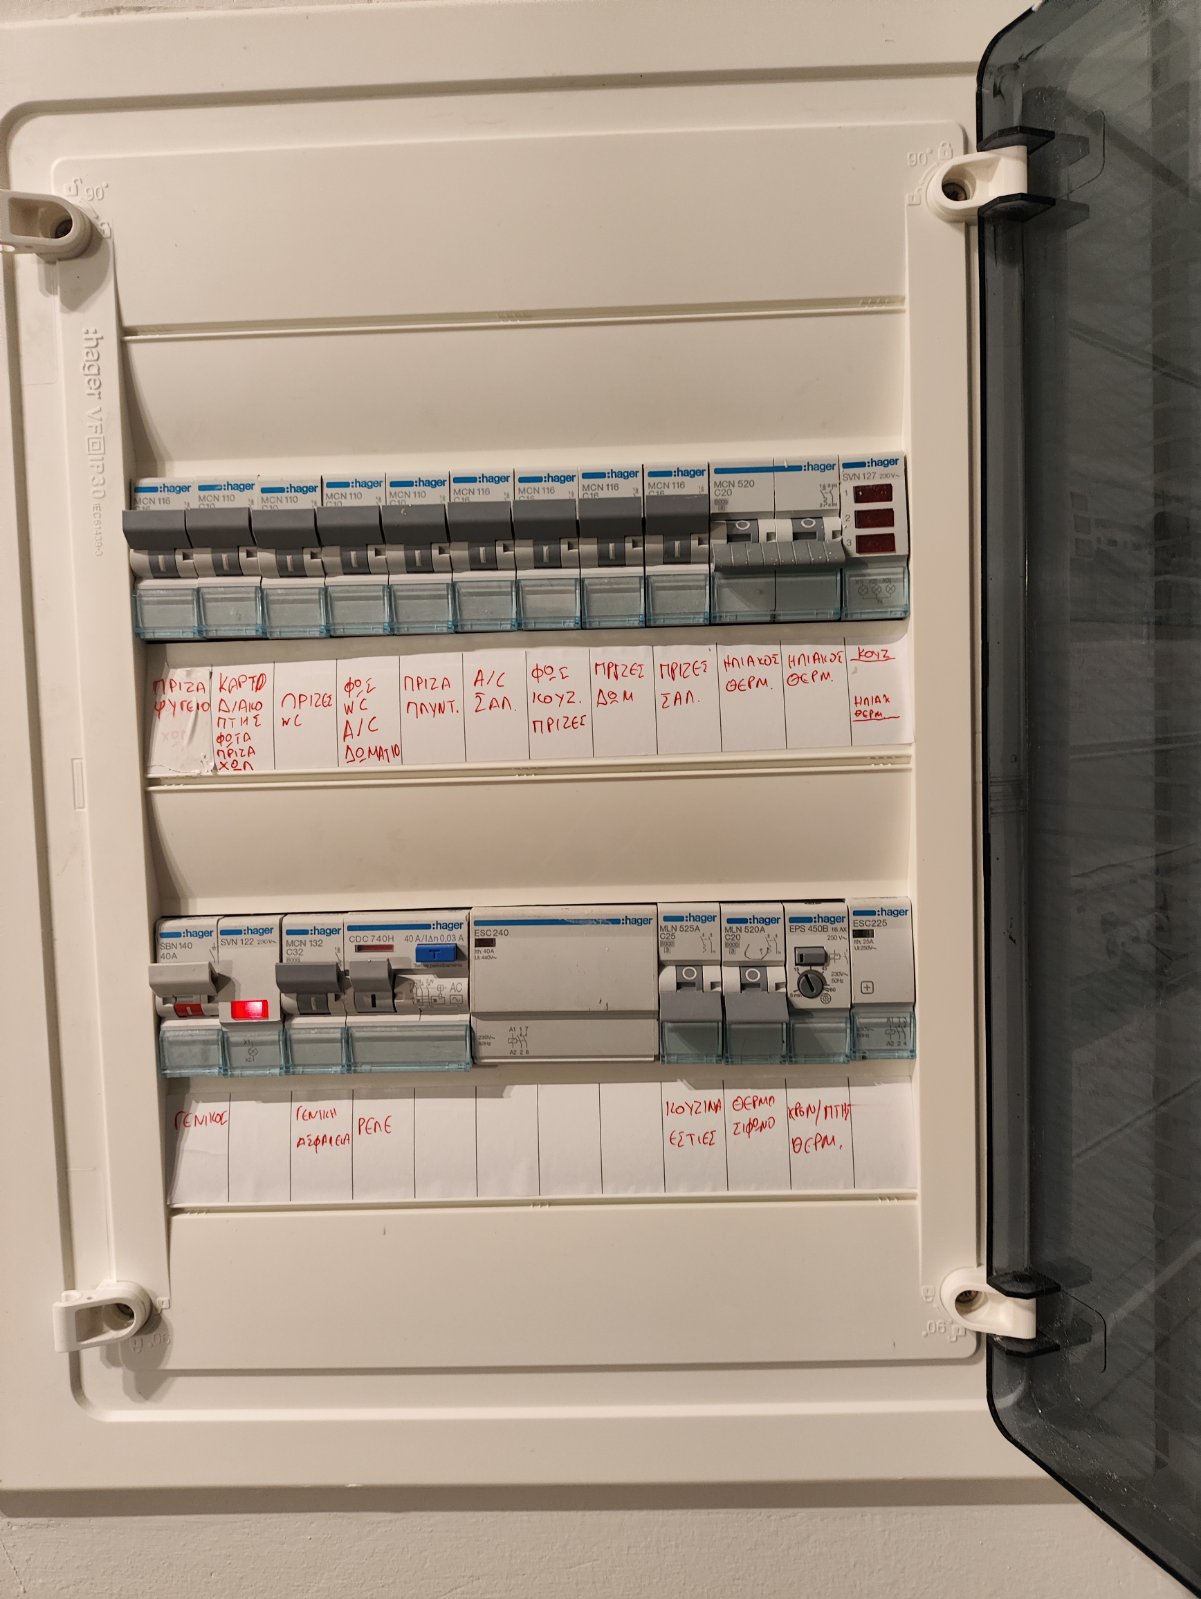 90°
90°
:hager VF IP30 IEC61439-3
:hager
:hager
:hager
:hager
:hager
:hager
:hager
:hager
:hager
:hager
:hager
MCN 116
MCN 110
MCN 110
MCN 110
MCN 110
MCN 116
MCN 116
MCN 116
MCN 116
MCN 520
C20
SVN 127 230V~
1
2
3
ΠΡΙΖΑ
ΨΥΓΕΙΟ
ΚΑΡΤΟ
ΔΙΑΚΟ
ΠΤΗΣ
ΦΩΤΑ
ΠΡΙΖΑ
ΧΩΛ
ΠΡΙΖΕΣ
WC
ΦΩΣ
WC
A/C
ΔΩΜΑΤΙΟ
ΠΡΙΖΑ
ΠΛΥΝΤ.
A/C
ΣΑΛ.
ΦΩΣ
ΚΟΥΖ.
ΠΡΙΖΕΣ
ΠΡΙΖΕΣ
ΔΩΜ
ΠΡΙΖΕΣ
ΣΑΛ.
ΗΛΙΑΚΟΣ
ΘΕΡΜ.
ΗΛΙΑΚΟΣ
ΘΕΡΜ.
ΚΟΥΖ
ΗΛΙΑΚ
ΘΕΡΜ.
:hager
SBN140
40A
:hager
SVN 122 230V~
:hager
MCN 132
C32
:hager
CDC 740H 40 A/IΔn 0,03 A
T
AC
:hager
ESC240
Ith: 40A
Ue:440V~
230V~
50Hz
A1 1 7
A2 2 8
:hager
MLN 525A
C25
:hager
MLN 520A
C20
:hager
EPS 450B 16 AX
250 V~
230V~
50Hz
:hager
ESC225
Ith: 25A
Ue:250V~
ΓΕΝΙΚΟΣ
ΓΕΝΙΚΗ
ΑΣΦΑΛΕΙΑ
ΡΕΛΕ
ΚΟΥΖΙΝΑ
ΕΣΤΙΕΣ
ΘΕΡΜΟ
ΣΙΦΩΝΟ
ΧΡΩΝ/ΠΤΗΣ
ΘΕΡΜ.
90°
90°